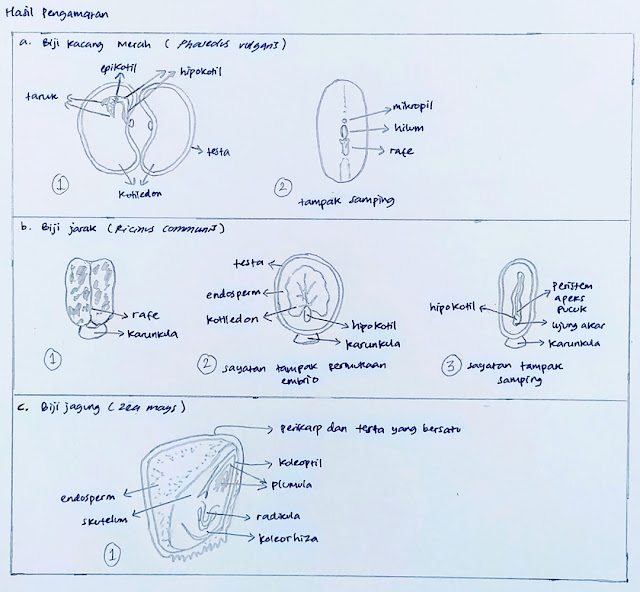 Hasil Pengamatan
a. Biji Kacang Merah (Phaseolus vulgaris)
epikotil
hipokotil
taruk
testa
kotiledon
1
mikropil
hilum
rafe
2
tampak samping
b. Biji jarak (Ricinus communis)
rafe
karunkula
1
testa
endosperm
kotiledon
hipokotil
karunkula
2 sayatan tampak permukaan
embrio
hipokotil
peristem
apeks
pucuk
ujung akar
karunkula
3 sayatan tampak
samping
c. Biji jagung (zea mays)
perikarp dan testa yang bersatu
koleoptil
plumula
endosperm
skutelum
radikula
koleorhiza
1